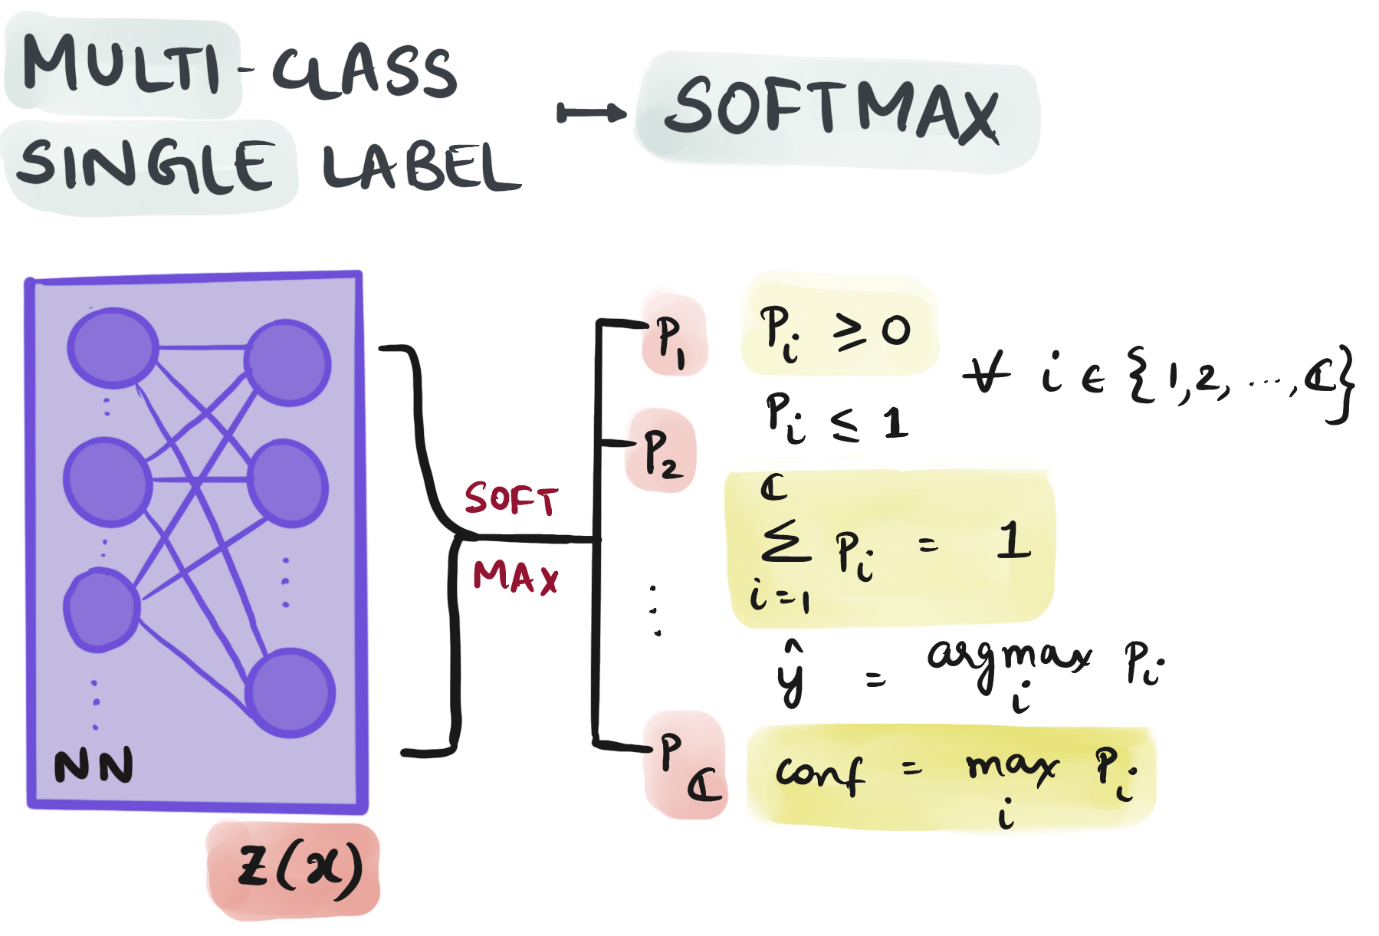 MULTI-CLASS
SINGLE LABEL
↦ SOFTMAX
NN
Z(x)
SOFT
MAX
P₁
P₂
⋮
P_ℂ
Pᵢ ≥ 0
Pᵢ ≤ 1
∀ i ∈ {1,2, ...,ℂ}
ℂ
Σ Pᵢ = 1
i=1
ŷ = argmax Pᵢ
i
conf = max Pᵢ
i